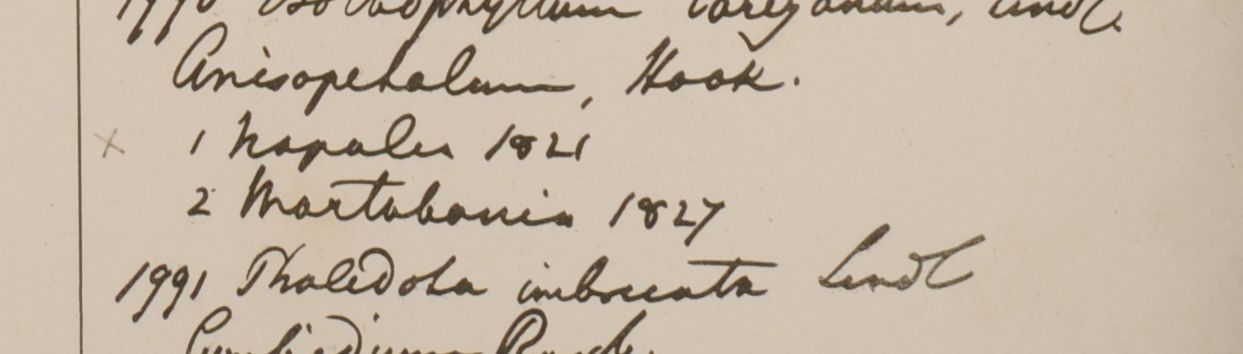 1990 Bolbophyllum Careyanum, Lindl.
Anisopetalum, Hook.
x 1 Napalia 1821
2 Martabania 1827
1991 Pholidota imbricata Lindl